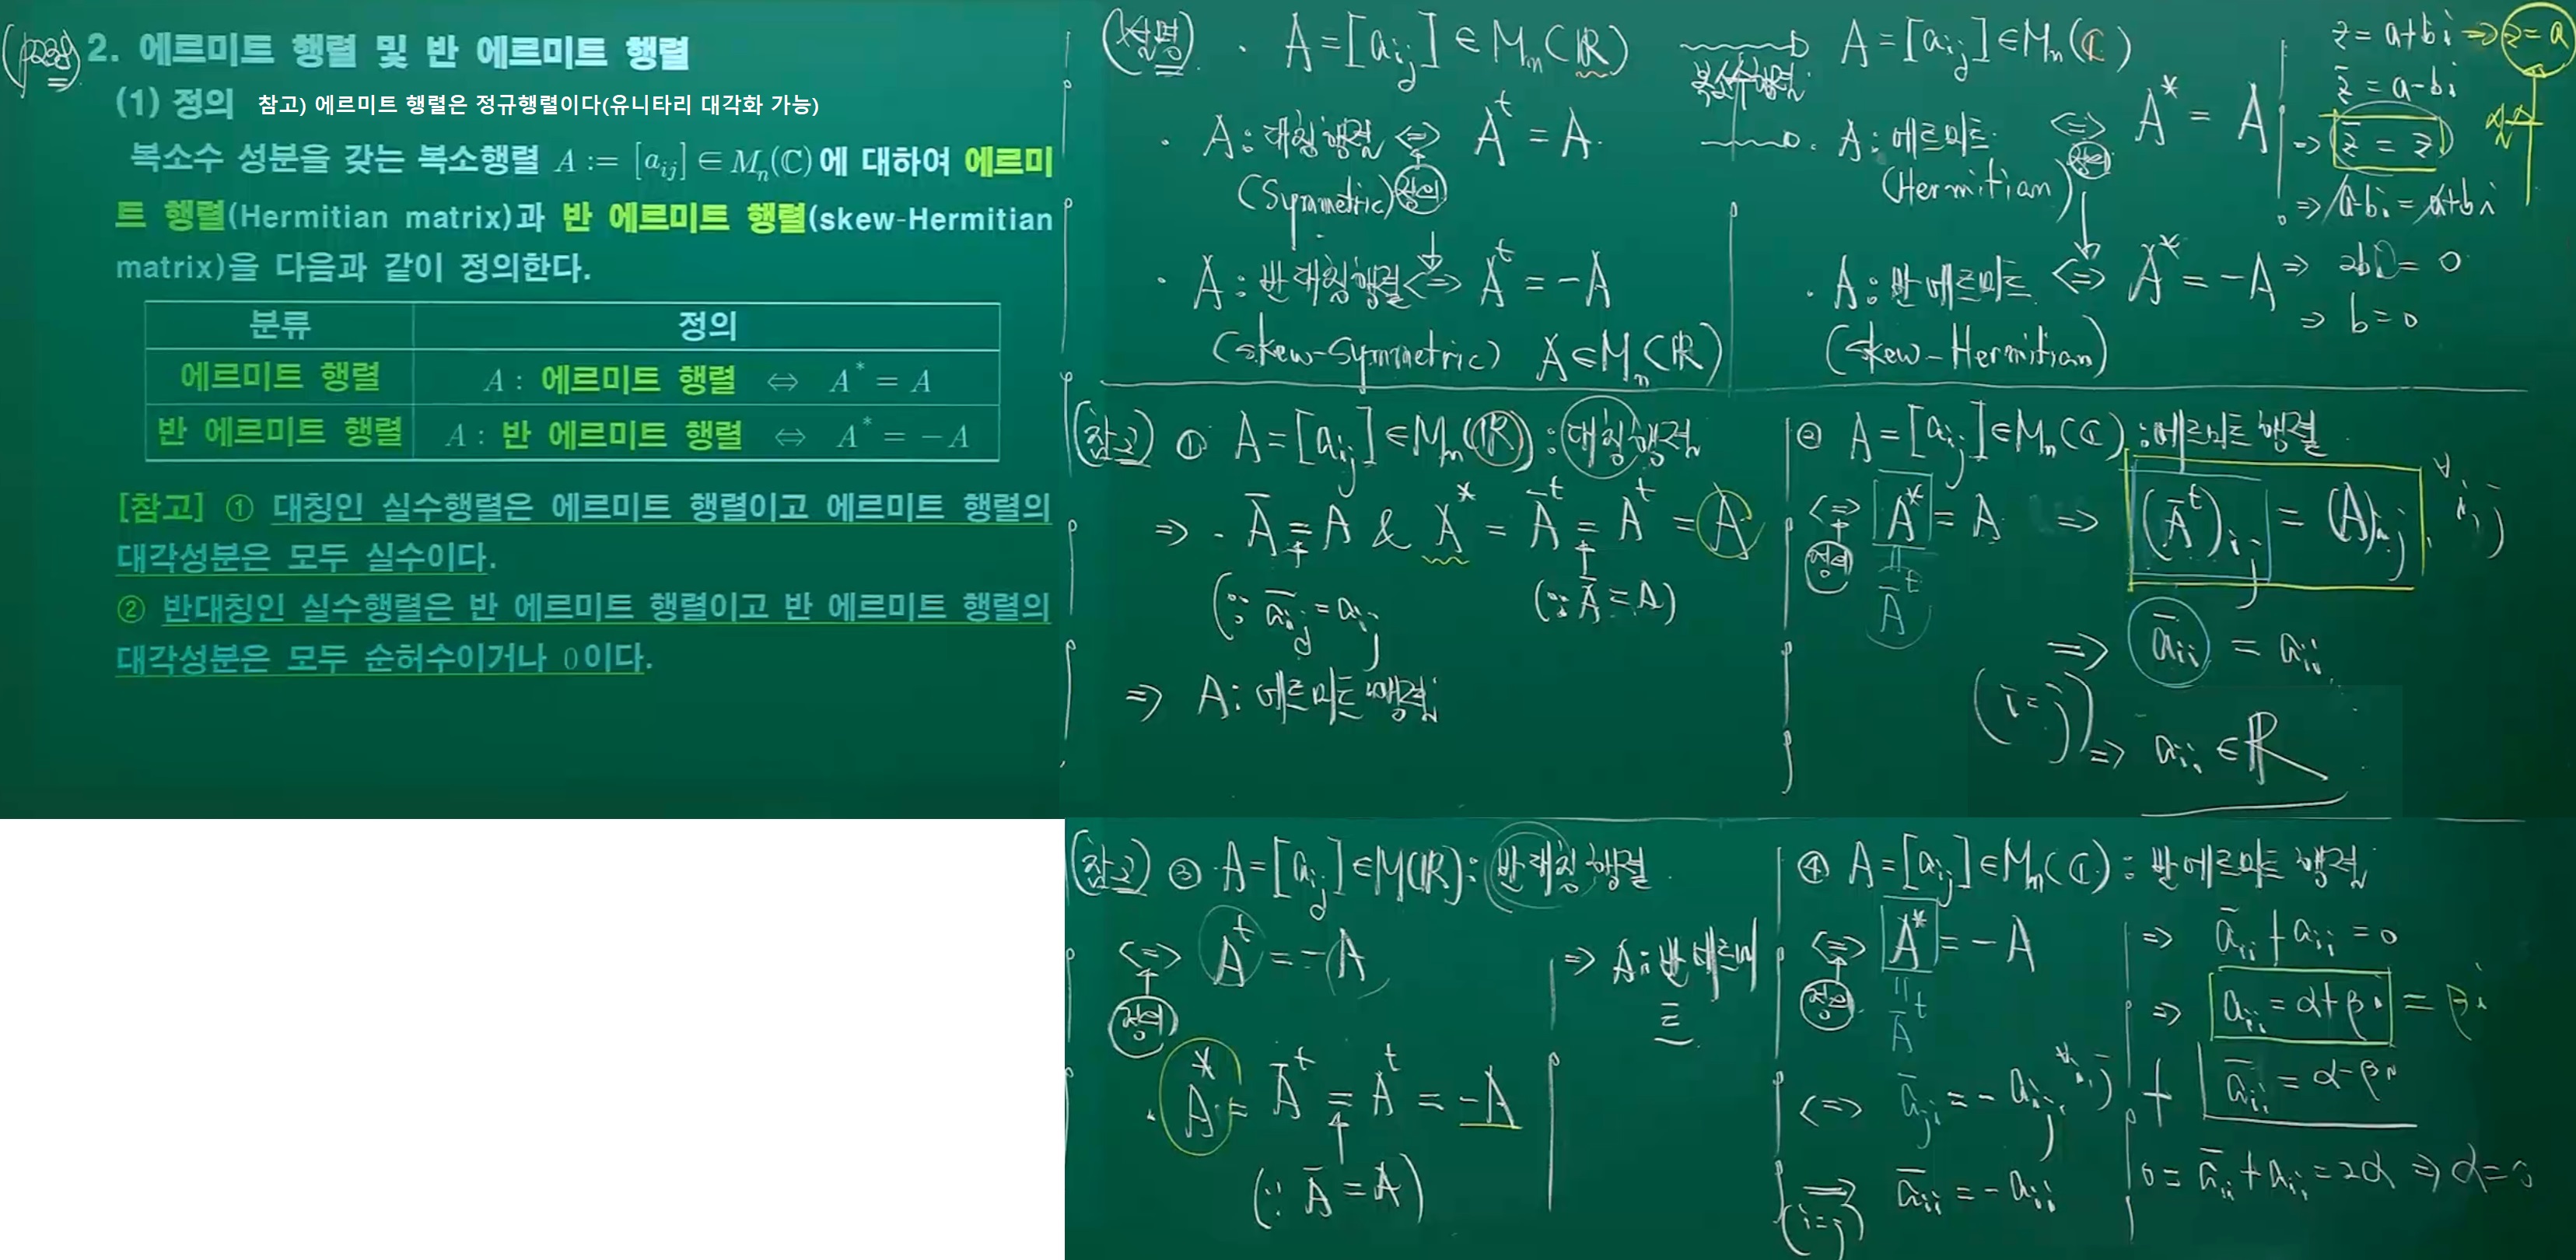 (p228)
2. 에르미트 행렬 및 반 에르미트 행렬
(1) 정의 참고) 에르미트 행렬은 정규행렬이다(유니타리 대각화 가능)
복소수 성분을 갖는 복소행렬 A := [aᵢⱼ] ∈ Mₙ(ℂ)에 대하여 에르미
트 행렬(Hermitian matrix)과 반 에르미트 행렬(skew-Hermitian
matrix)을 다음과 같이 정의한다.
분류 정의
에르미트 행렬 A : 에르미트 행렬 ⇔ A* = A
반 에르미트 행렬 A : 반 에르미트 행렬 ⇔ A* = -A
[참고] ① 대칭인 실수행렬은 에르미트 행렬이고 에르미트 행렬의
대각성분은 모두 실수이다.
② 반대칭인 실수행렬은 반 에르미트 행렬이고 반 에르미트 행렬의
대각성분은 모두 순허수이거나 0이다.
(설명) · A = [aᵢⱼ] ∈ Mₙ(ℝ)
· A : 대칭행렬 ⇔ Aᵗ = A
(Symmetric) 정의
· A : 반대칭행렬 ⇔ Aᵗ = -A
(skew-Symmetric) A ∈ Mₙ(ℝ)
복소수행렬
A = [aᵢⱼ] ∈ Mₙ(ℂ)
· A : 에르미트 ⇔ A* = A
(Hermitian) 정의
· A : 반에르미트 ⇔ A* = -A
(Skew-Hermitian)
z = a+bi ⇒ z = a
z̄ = a-bi
⇒ z̄ = z
실수
⇒ a-bi = a+bi
⇒ 2bi = 0
⇒ b = 0
(참고) ① A = [aᵢⱼ] ∈ Mₙ(ℝ) : 대칭행렬
⇒ · Ā = A & A* = Āᵗ = Aᵗ = A
(∵ āᵢⱼ = aᵢⱼ) (∵ Ā = A)
⇒ A : 에르미트 행렬
② A = [aᵢⱼ] ∈ Mₙ(ℂ) : 에르미트 행렬
⇔ A* = A ⇒ (Āᵗ)ᵢⱼ = (A)ᵢⱼ, ∀i,j
정의
Āᵗ
⇒ āᵢᵢ = aᵢᵢ
(i=j)
⇒ aᵢᵢ ∈ ℝ
(참고) ③ · A = [aᵢⱼ] ∈ M(ℝ) : 반대칭행렬
⇔ Aᵗ = -A ⇒ A : 반에르미
정의 트
· A* = Āᵗ = Aᵗ = -A
(∵ Ā = A)
④ A = [aᵢⱼ] ∈ Mₙ(ℂ) : 반에르미트 행렬
⇔ A* = -A
정의
Āᵗ
⇔ āⱼᵢ = -aᵢⱼ, ∀i,j
⇒ āᵢᵢ = -aᵢᵢ
(i=j)
⇒ āᵢᵢ + aᵢᵢ = 0
⇒ aᵢᵢ = α+βi = βi
+ āᵢᵢ = α-βi
0 = āᵢᵢ + aᵢᵢ = 2α ⇒ α = 0